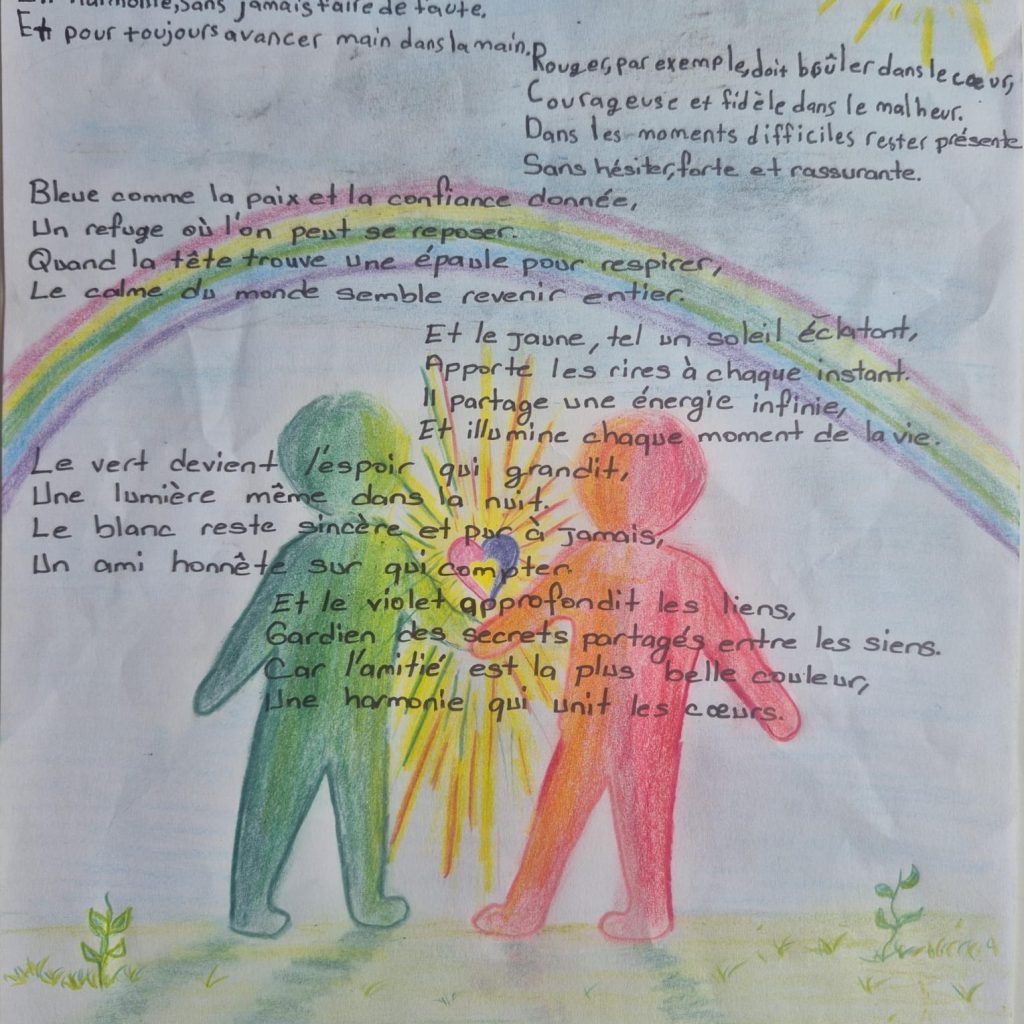 En harmonie, sans jamais faire de faute,
Et pour toujours avancer main dans la main.
Rouges, par exemple, doit brûler dans le cœur,
Courageuse et fidèle dans le malheur.
Dans les moments difficiles rester présente
Sans hésiter, forte et rassurante.
Bleue comme la paix et la confiance donnée,
Un refuge où l'on peut se reposer.
Quand la tête trouve une épaule pour respirer,
Le calme du monde semble revenir entier.
Et le jaune, tel un soleil éclatant,
Apporte les rires à chaque instant.
Il partage une énergie infinie,
Et illumine chaque moment de la vie.
Le vert devient l'espoir qui grandit,
Une lumière même dans la nuit.
Le blanc reste sincère et pur à jamais,
Un ami honnête sur qui compter.
Et le violet approfondit les liens,
Gardien des secrets partagés entre les siens.
Car l'amitié est la plus belle couleur,
Une harmonie qui unit les cœurs.